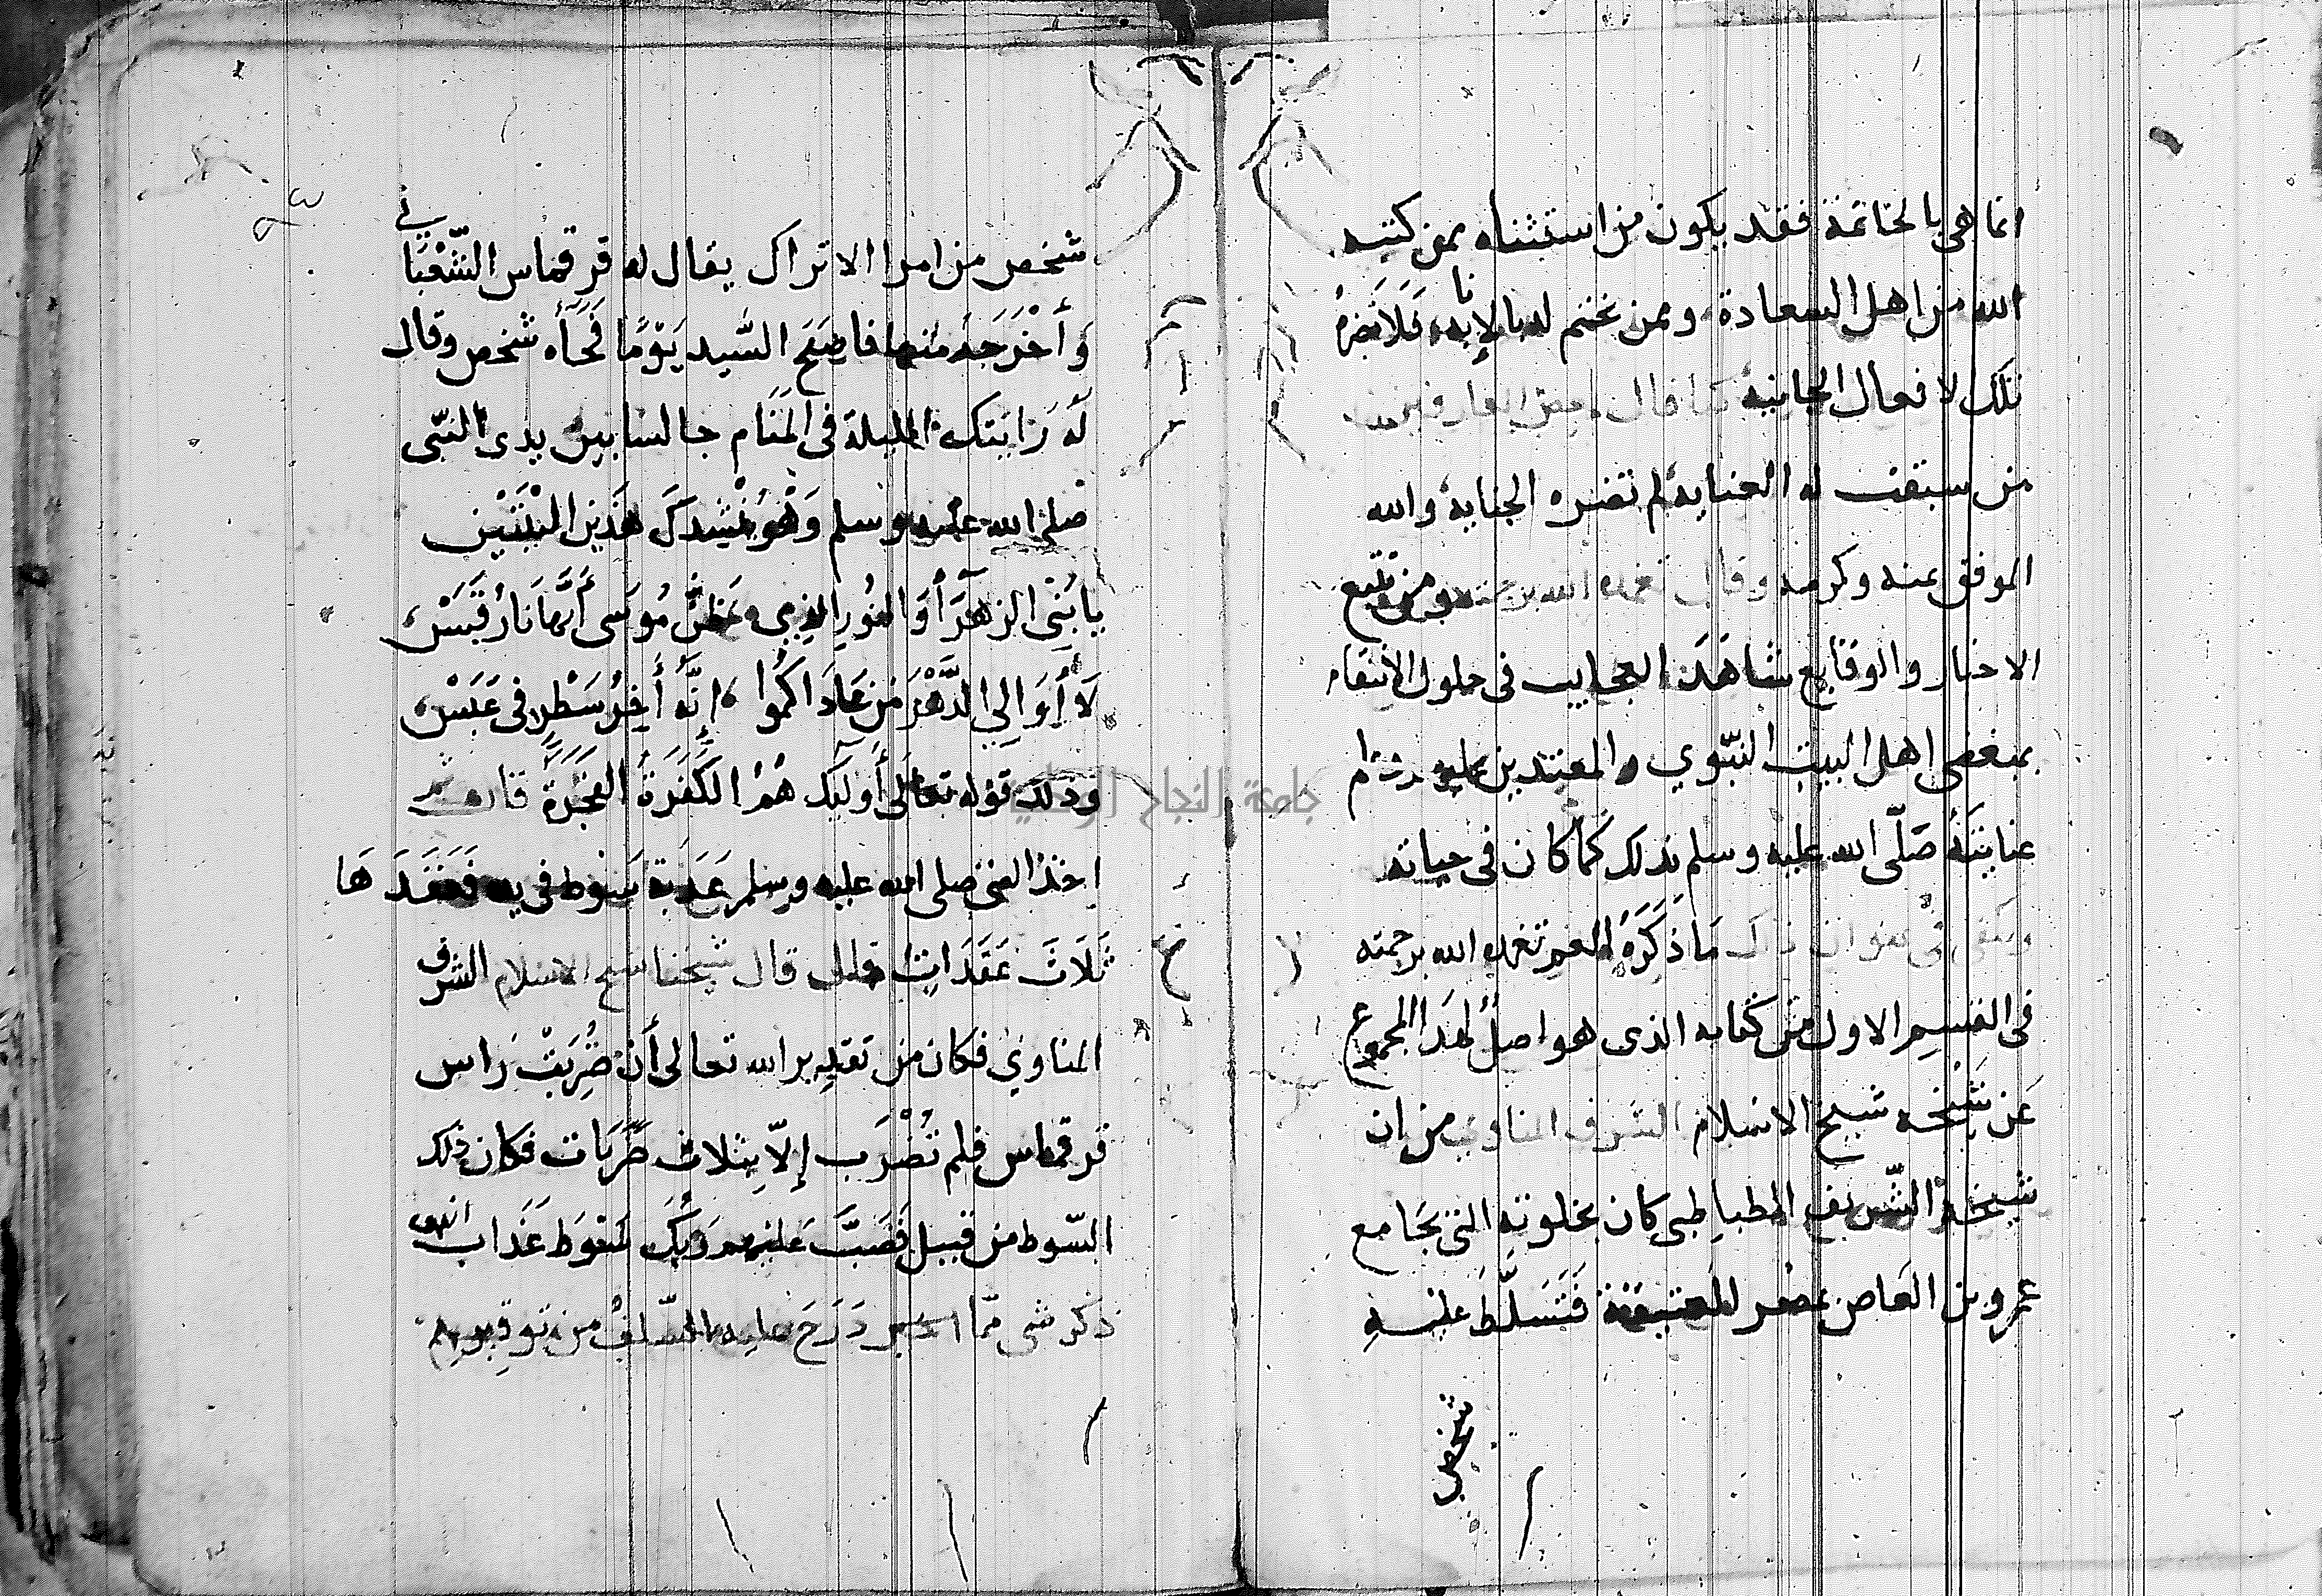 انما هى بالخاتمة فقد يكون من استثناه ممن كتبه
الله من اهل السعادة وممن يختم له بالإنابه فَلَا تضره
تلك الافعال الجانبه كما قال بعض العارفين
من سبقت له العنايه لم تضره الجنايه والله
الموفق بمنه وكرمه وقال تغمده الله برحمته ومن تتبع
الاخبار والوقايع شاهَدَ العجايب فى حلول الانتقام
بمبغضى اهل البيت النبّوي والمعتدين عليهم
عنايته صَلّى الله عليه وسلم بذلك كما كان فى حياته
ذلك مَا ذَكَرَهُ تغمده الله برحمته
فى القسم الاول من كتابه الذى هو اصلٌ لهَذا المجموع
عَن شَيْخه شيخ الاسلام الشرف المناوي من ان
شيخه الشّريف الطباطبى كان بخلوته التى بجَامع
عمرو بن العَاص بمصر العتيقة فَتَسَلَّطَ عليه
شخص
شخص من امرا الاتراك يقال له قرقماس الشّعْبَانى
وَأخْرَجَهُ منها فاصبَح السَّيد يَوْمًا فَجَأه شخص وقال
لَه رَايتك الليلة فى المَنَام جالسا بين يدى النبّى
صلى الله عليه وسلم وَهُوَ يُنْشِدكَ هَذين البْيتَيْن
يا بَنِى الزهرَآ وَالنُورِ الذِي ظَنَّ مُوسَى أنَّهَا نَارُ قَبَسْ
لَا أُوَالِي الدَّهْرَ مَن عَادَاكُمُوا إنَّهُ أَخِرُ سَطْرٍ فى عَبَسْ
وَذلك قوله تعالى أُوليك هُمُ الكَفَرَةُ الفَجَرَةُ قال ثم
اخذ النبى صلى الله عليه وسلم عَذَبة سَوط فى يده فَعَقَدَهَا
ثَلَاثَ عَقَدَاتٍ قال شيخنا شيخ الاسلام الشرف
المناوي فكان من تقدير الله تعالى أن ضُرِبَتْ رَاس
قرقماس فلم تُضْرَب إلاّ بِثلاث ضَرَبَات فكان ذلك
السّوط من قبيل فَصَبَّ عَليهم رَبُّكَ سَوْطَ عَذَاب انتهى
ذكر شى ممّا دَرَجَ عليه السّلفُ من توقيرهم